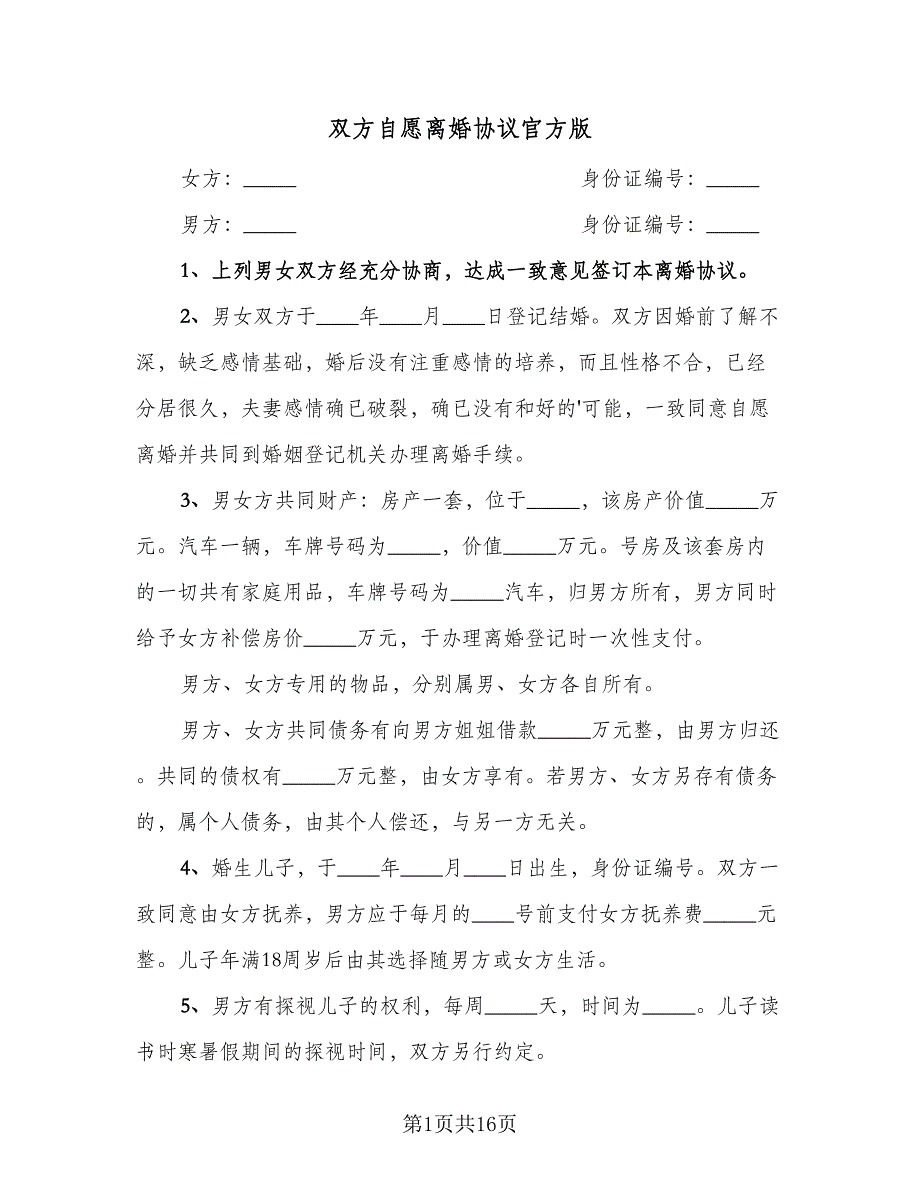 双方自愿离婚协议官方版
女方：_____ 身份证编号：_____
男方：_____ 身份证编号：_____
1、上列男女双方经充分协商，达成一致意见签订本离婚协议。
2、男女双方于____年____月____日登记结婚。双方因婚前了解不
深，缺乏感情基础，婚后没有注重感情的培养，而且性格不合，已经
分居很久，夫妻感情确已破裂，确已没有和好的'可能，一致同意自愿
离婚并共同到婚姻登记机关办理离婚手续。
3、男女方共同财产：房产一套，位于_____，该房产价值_____万
元。汽车一辆，车牌号码为_____，价值_____万元。号房及该套房内
的一切共有家庭用品，车牌号码为_____汽车，归男方所有，男方同时
给予女方补偿房价_____万元，于办理离婚登记时一次性支付。
男方、女方专用的物品，分别属男、女方各自所有。
男方、女方共同债务有向男方姐姐借款_____万元整，由男方归还
。共同的债权有_____万元整，由女方享有。若男方、女方另存有债务
的，属个人债务，由其个人偿还，与另一方无关。
4、婚生儿子，于____年____月____日出生，身份证编号。双方一
致同意由女方抚养，男方应于每月的____号前支付女方抚养费_____元
整。儿子年满18周岁后由其选择随男方或女方生活。
5、男方有探视儿子的权利，每周_____天，时间为_____。儿子读
书时寒暑假期间的探视时间，双方另行约定。
第1页共16页